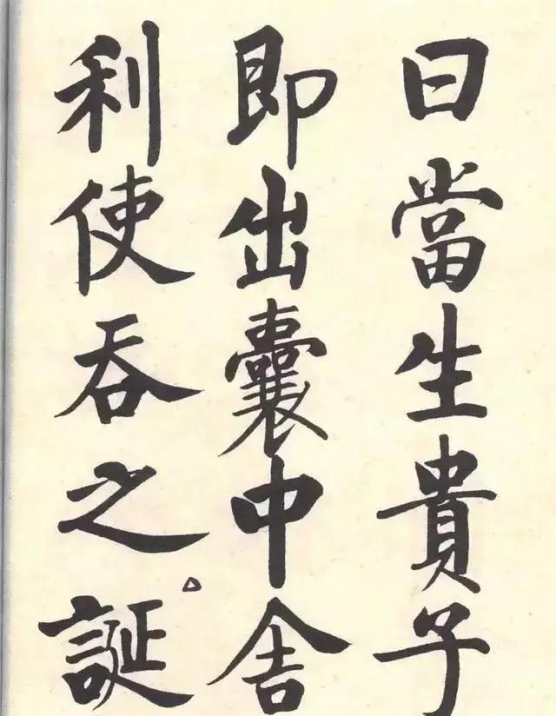 曰當生貴子
即出囊中舎
利使吞之誕